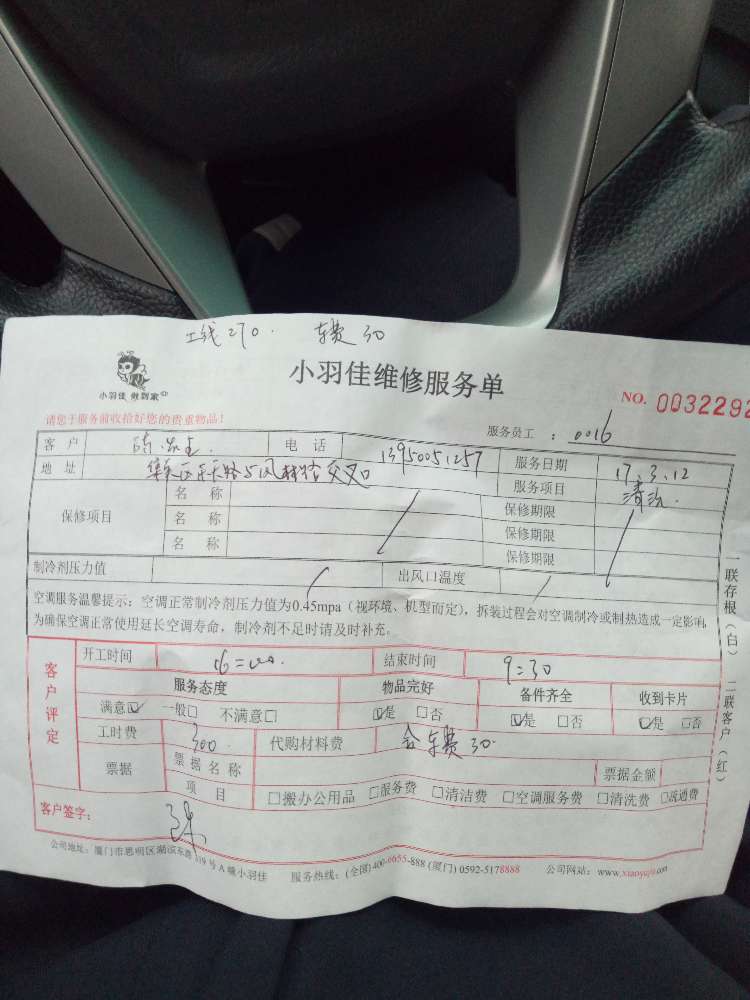 工线270. 车费30
小羽佳 做到家
小羽佳维修服务单
NO. 0032292
请您于服务前收拾好您的贵重物品!
服务员工 : 0016
客户 电话 13950051257 服务日期 17.3.12
地址 集美区乐天路与风林路交叉口 服务项目 清洗.
保修项目 名称 保修期限
名称 保修期限
名称 保修期限
制冷剂压力值 出风口温度
空调服务温馨提示:空调正常制冷剂压力值为0.45mpa(视环境、机型而定),拆装过程会对空调制冷或制热造成一定影响,
为确保空调正常使用延长空调寿命,制冷剂不足时请及时补充。
客户评定
开工时间 16=00. 结束时间 9=30
服务态度 物品完好 备件齐全 收到卡片
满意☑ 一般□ 不满意□ ☑是 □否 ☑是 □否 ☑是 □否
工时费 300. 代购材料费 含车费30.
票据 票据名称 票据金额
项目 □搬办公用品 □服务费 □清洁费 □空调服务费 □清洗费 □疏通费
客户签字:
公司地址:厦门市思明区湖滨东路319号A幢小羽佳 服务热线:(全国)400-6655-888 (厦门) 0592-5178888 公司网站:www.xiaoyujia.com
一联存根(白) 二联客户(红)